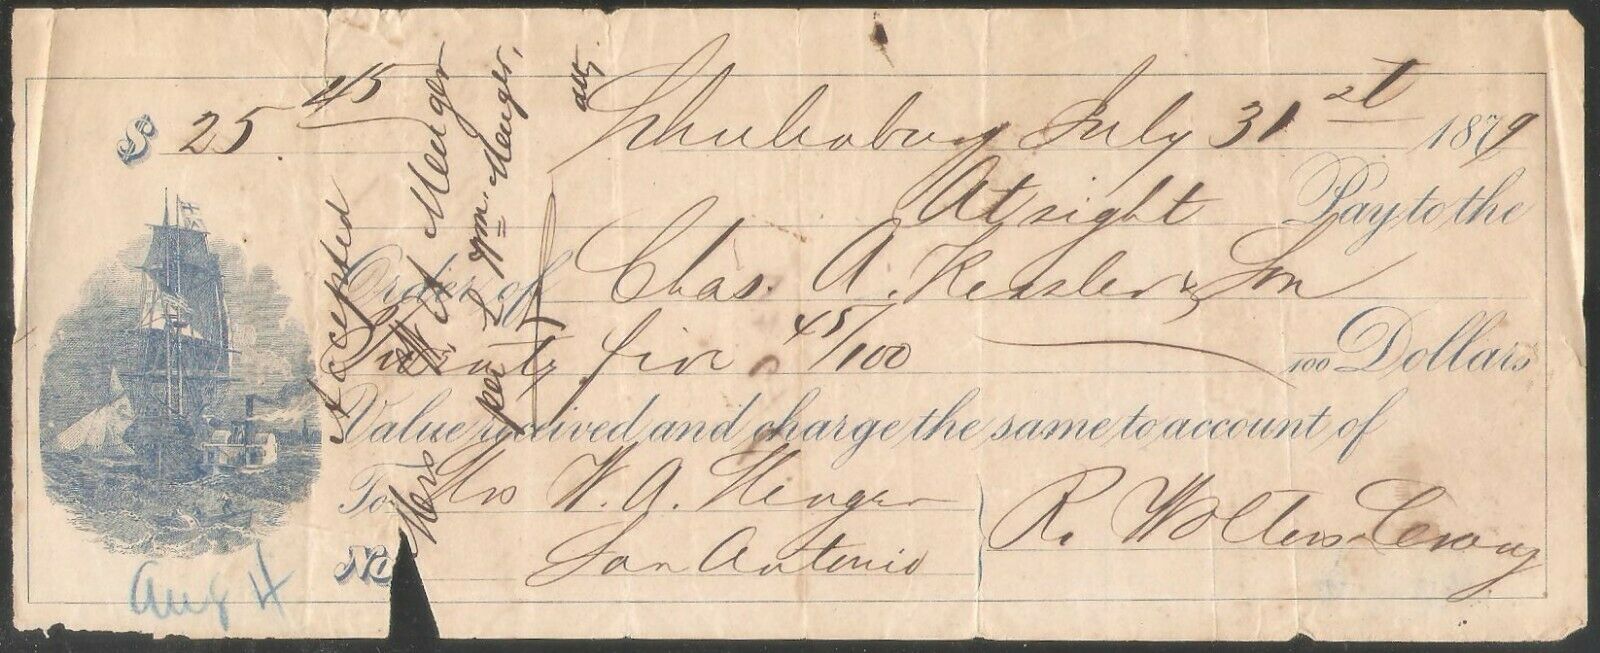 $ 25 45
Schulenburg July 31st 1879
At sight Pay to the
Order of Chas. A. Kessler & Son
Twenty five 45/100 100 Dollars
Value received and charge the same to account of
To Mrs W. A. Menger
San Antonio
R. Wolters
No
Aug 4
Accepted
Mrs W A Menger
per L Wm. Menger,
att,